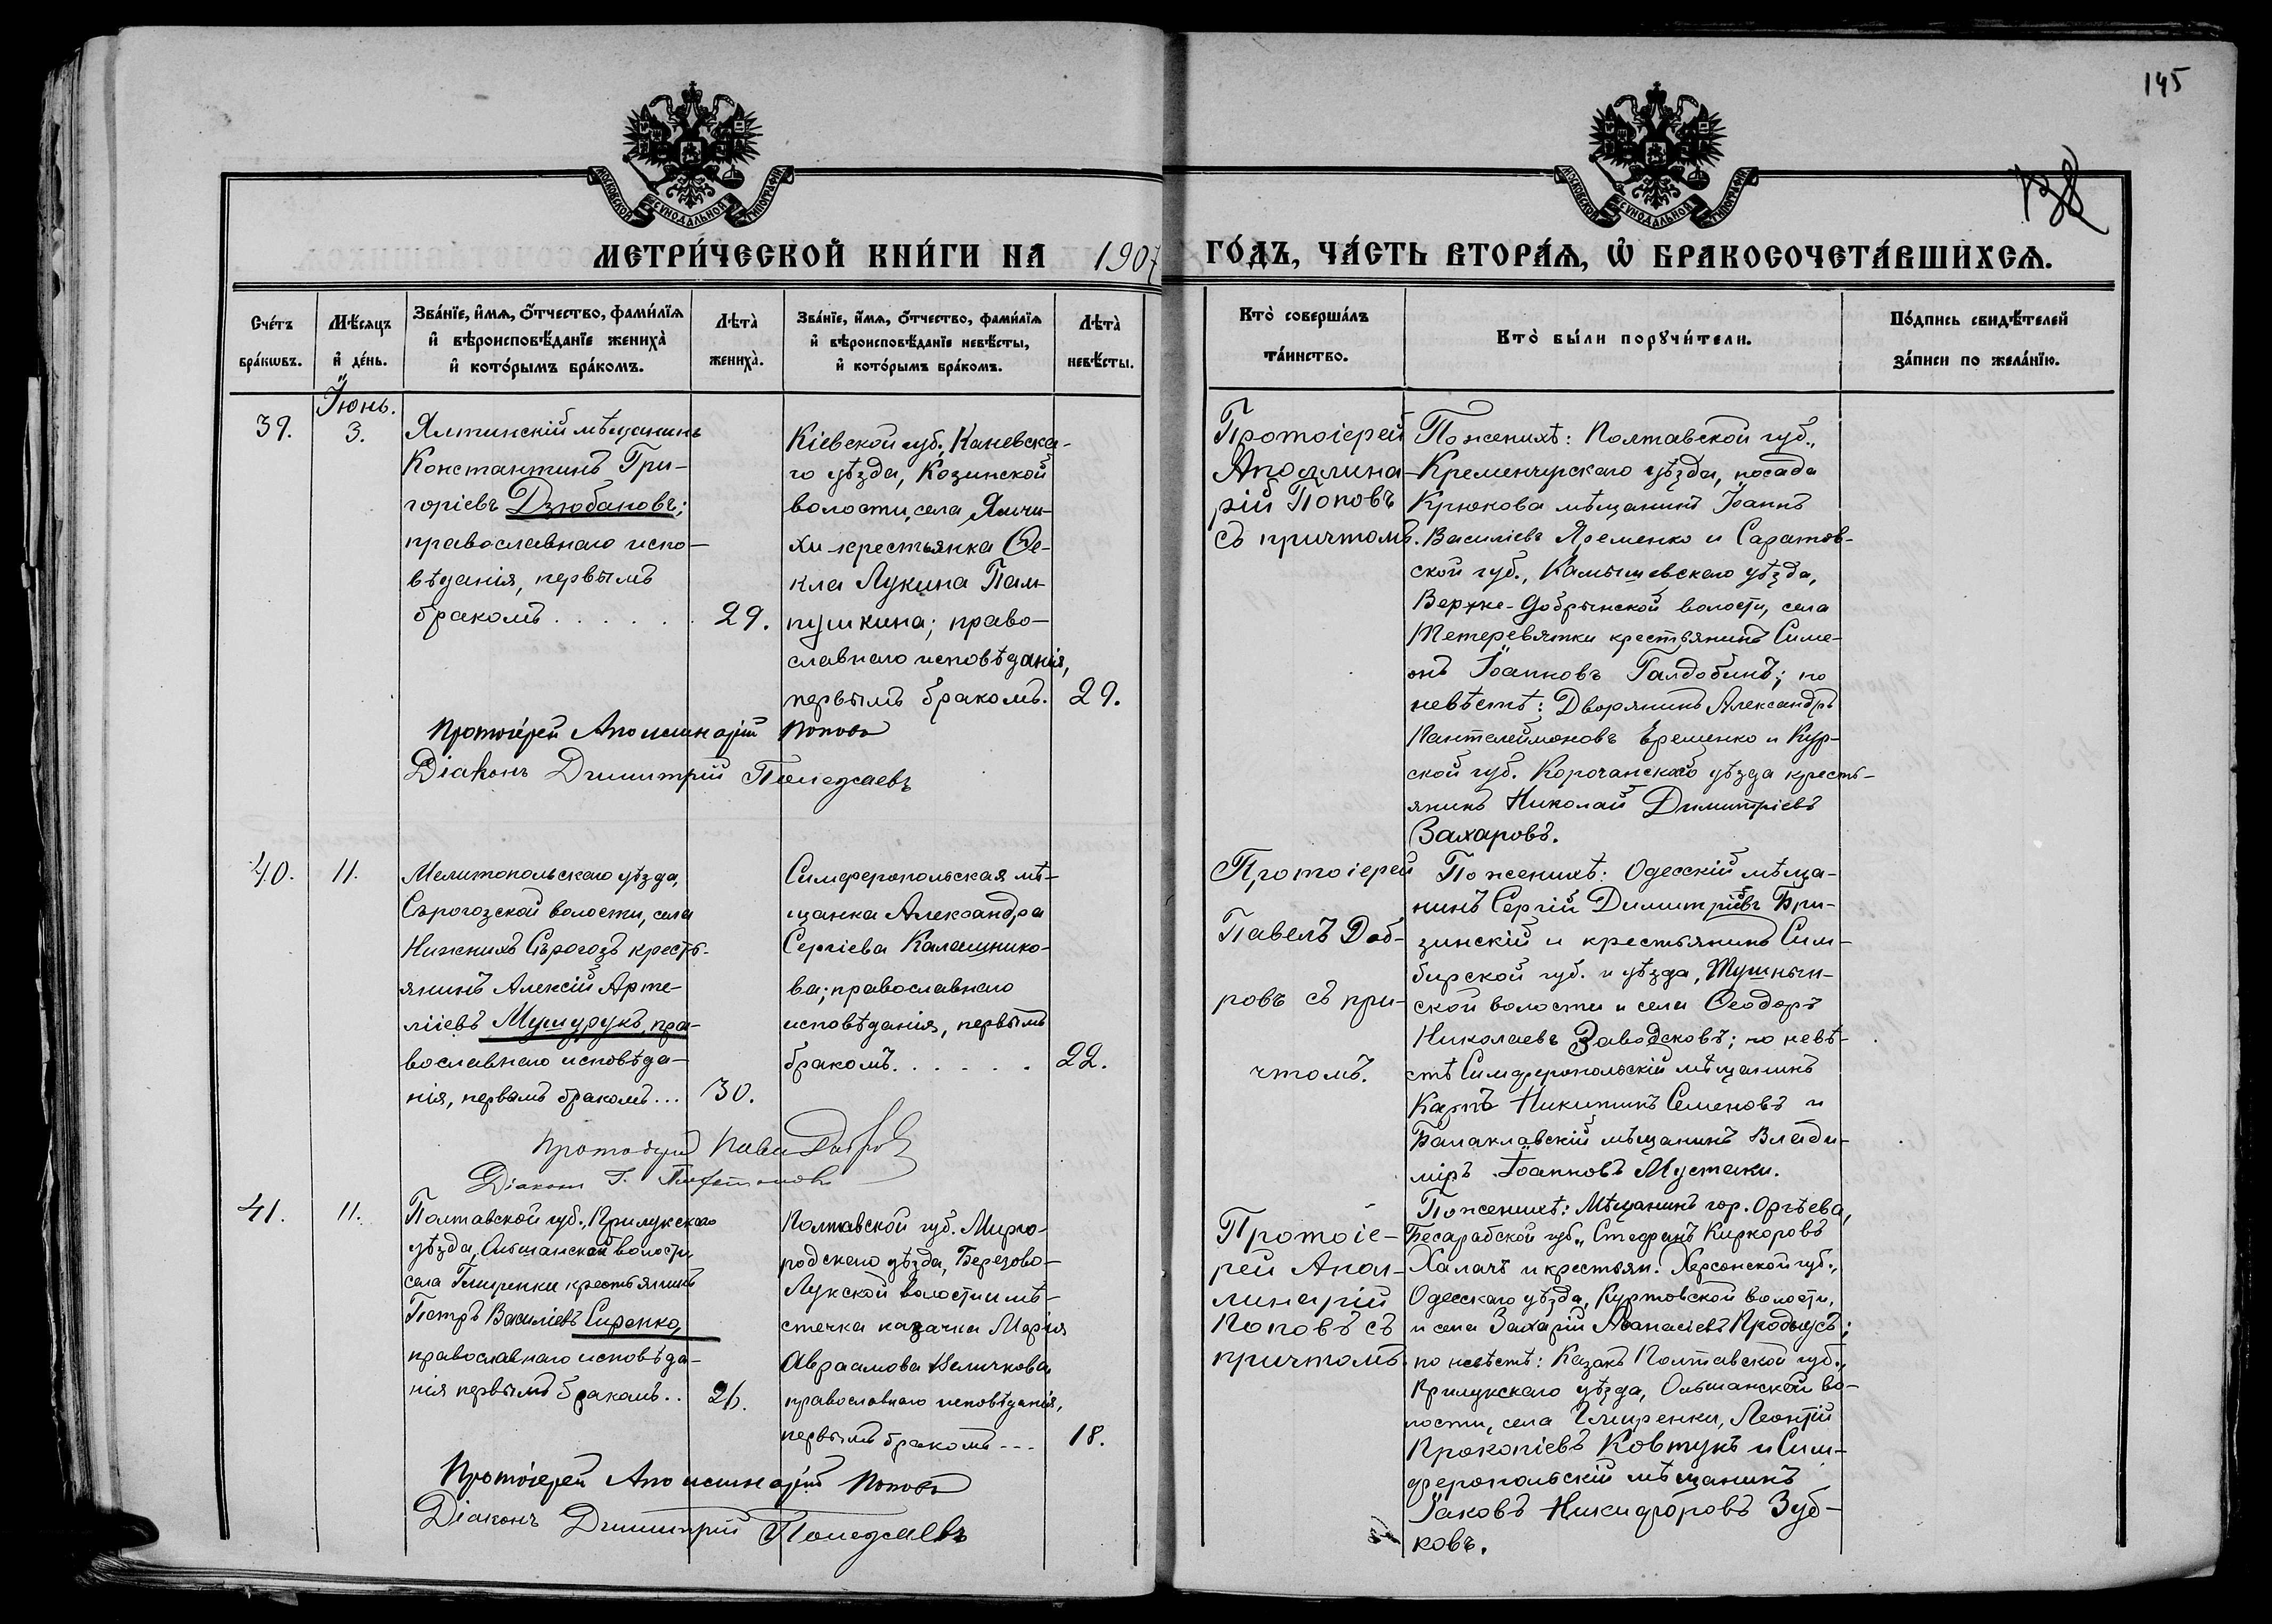 145
138
МОСКОВСКОЙ СѴНОДАЛЬНОЙ ТИПОГРАФІИ
МОСКОВСКОЙ СѴНОДАЛЬНОЙ ТИПОГРАФІИ
МЕТРИ́ЧЕСКОЙ КНИ́ГИ НА 1907 ГО́ДЪ, ЧА́СТЬ ВТОРА́Я, Ѡ БРАКОСОЧЕТА́ВШИХСЯ.
Сче́тъ бра́кѡвъ.
Мѣ́сяцъ и де́нь.
Зва́нїе, и́мя, ѻ́тчество, фами́лїя
и вѣроисповѣ́данїе жениха̀
и кото́рымъ бра́комъ.
Лѣта̀ жениха̀.
Зва́нїе, и́мя, ѻ́тчество, фами́лїя
и вѣроисповѣ́данїе невѣ́сты,
и кото́рымъ бра́комъ.
Лѣта̀ невѣ́сты.
Кто̀ соверша́лъ
та́инство.
Кто̀ бы́ли порꙋчи́тели.
По́дпись свидѣ́телей
за́писи по жела́нїю.
39.
Іюнь.
3.
Ялтинскій мѣщанинъ
Константинъ Гри-
горіевъ Дзюбановъ;
православнаго испо-
вѣданія, первымъ
бракомъ . . . . . .
29.
Кіевской губ., Каневска-
го уѣзда, Козинской
волости, села Ямчи-
хи крестьянка Ѳе-
кла Лукина Пам-
пушкина; право-
славнаго исповѣданія,
первымъ бракомъ.
29.
Протоіерей Аполлинарій Поповъ
Діаконъ Димитрій Полежаевъ
Протоіерей
Аполлина-
рій Поповъ
съ причтомъ.
По женихѣ: Полтавской губ.,
Кременчугскаго уѣзда, посада
Крюкова мѣщанинъ Іоаннъ
Василіевъ Яременко и Саратов-
ской губ., Камышевскаго уѣзда,
Верхне-Добрынской волости, села
Тетеревятки крестьянинъ Симе-
онъ Іоанновъ Галдобинъ; по
невѣстѣ: Дворянинъ Александръ
Пантелеймоновъ Еременко и Кур-
ской губ. Корочанскаго уѣзда кресть-
янинъ Николай Димитріевъ
Захаровъ.
40.
11.
Мелитопольскаго уѣзда,
Сѣрогозской волости, села
Нижнихъ Сѣрогозъ кресть-
янинъ Алексій Арте-
міевъ Мушурукъ, пра-
вославнаго исповѣда-
нія, первымъ бракомъ...
30.
Симферопольская мѣ-
щанка Александра
Сергіева Калашнико-
ва; православнаго
исповѣданія, первымъ
бракомъ. . . . . .
22.
Протоіерей Павелъ Добровъ
Діаконъ
Протоіерей
Павелъ Доб-
ровъ съ при-
чтомъ.
По женихѣ: Одесскій мѣща-
нинъ Сергій Димитріевъ Бри-
зинскій и крестьянинъ Сим-
бирской губ. и уѣзда, Тушнын-
ской волости и села Ѳеодоръ
Николаевъ Заводсковъ; по невѣ-
стѣ Симферопольскій мѣщанинъ
Карпъ Никитинъ Семеновъ и
Балаклавскій мѣщанинъ Влади-
міръ Іоанновъ Мустаки.
41.
11.
Полтавской губ., Прилукскаго
уѣзда, Ольшанской волости
села Гмиренки крестьянинъ
Петръ Василіевъ Сиренко,
православнаго исповѣда-
нія первымъ бракомъ..
26.
Полтавской губ. Мирго-
родскаго уѣзда, Березово-
Лукской волости и мѣ-
стечка казачка Марія
Авраамова Величкова
православнаго исповѣданія,
первымъ бракомъ ---
18.
Протоіерей Аполлинарій Поповъ
Діаконъ Димитрій Полежаевъ
Протоіе-
рей Апол-
линарій
Поповъ съ
причтомъ.
По женихѣ: Мѣщанинъ гор. Оргѣева,
Бесарабской губ., Стефанъ Киркоровъ
Халачъ и крестьян. Херсонской губ.,
Одесскаго уѣзда, Куртовской волости,
и села Захарій Аѳанасіевъ Продыусъ;
по невѣстѣ: Казакъ Полтавской губ.,
Прилукскаго уѣзда, Ольшанской во-
лости, села Гмиренки, Леонтій
Прокопіевъ Ковтунъ и Сим-
феропольскій мѣщанинъ
Іаковъ Никифоровъ Зуб-
ковъ.